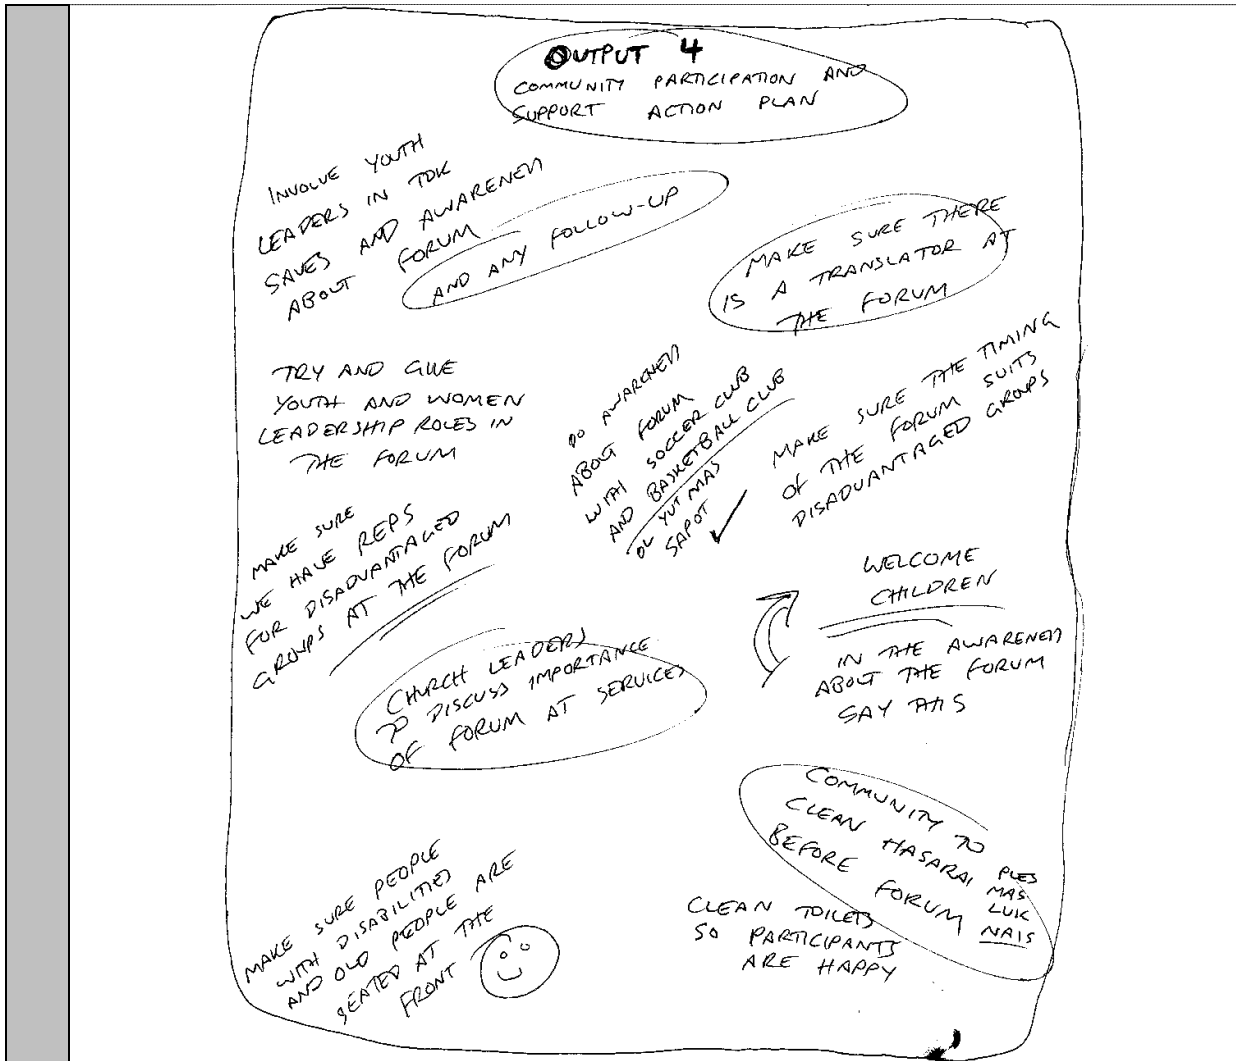 OUTPUT 4
COMMUNITY PARTICIPATION AND
SUPPORT ACTION PLAN
INVOLVE YOUTH
LEADERS IN TOK
SAVES AND AWARENESS
ABOUT FORUM
AND ANY FOLLOW-UP
MAKE SURE THERE
IS A TRANSLATOR AT
THE FORUM
TRY AND GIVE
YOUTH AND WOMEN
LEADERSHIP ROLES IN
THE FORUM
DO AWARENESS
ABOUT FORUM
WITH SOCCER CLUB
AND BASKETBALL CLUB
OL YUT MAS
SAPOT
MAKE SURE THE TIMING
OF THE FORUM SUITS
DISADVANTAGED GROUPS
MAKE SURE
WE HAVE REPS
FOR DISADVANTAGED
GROUPS AT THE FORUM
WELCOME
CHILDREN
IN THE AWARENESS
ABOUT THE FORUM
SAY THIS
CHURCH LEADERS
TO DISCUSS IMPORTANCE
OF FORUM AT SERVICES
COMMUNITY TO
CLEAN HASARAI
BEFORE FORUM
PLES
MAS
LUK
NAIS
CLEAN TOILETS
SO PARTICIPANTS
ARE HAPPY
MAKE SURE PEOPLE
WITH DISABILITIES
AND OLD PEOPLE ARE
SEATED AT THE
FRONT